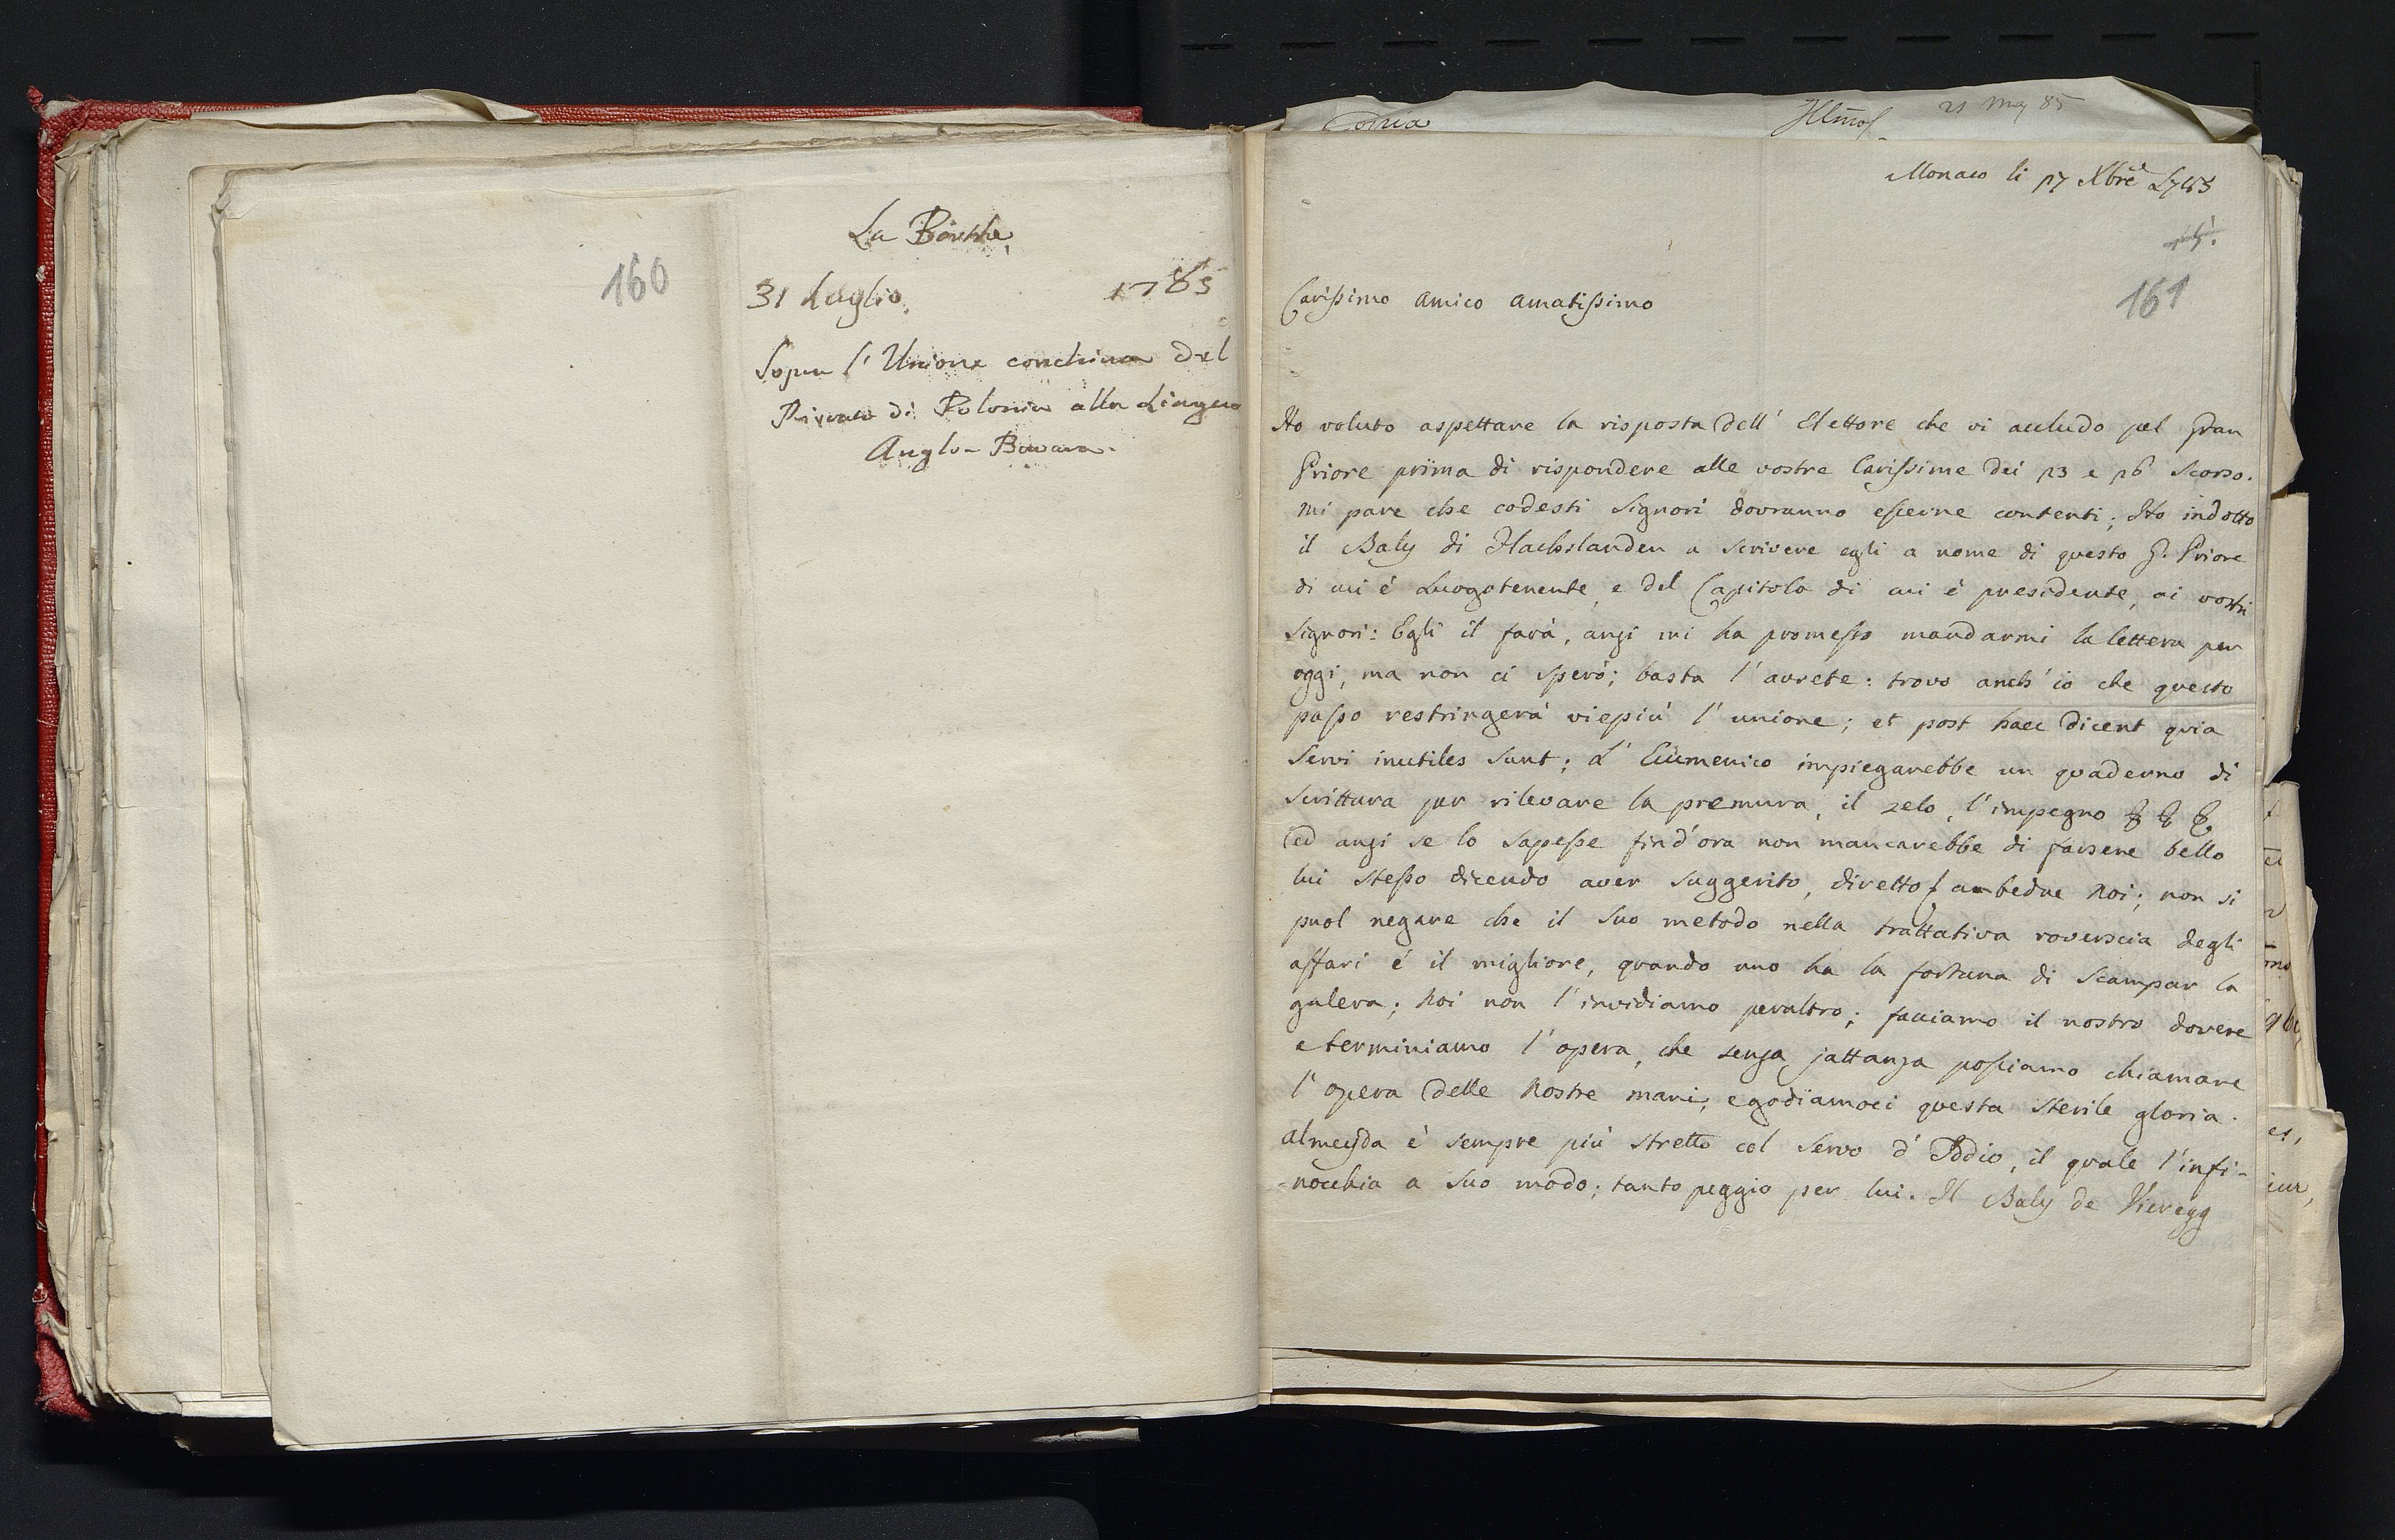 160
La
31 Luglio. 1785
Sopra l' Unione conchiusa del
di Polonia alla Lingua
Anglo-Bavara.
Copia
21 May 85
Monaco li 17 Xbre 1785
15.
161
Carissimo Amico Amatissimo
Ho voluto aspettare la risposta dell' Elettore che vi accludo pel Gran
Priore prima di rispondere alle vostre Carissime dei 13 e 16 scorso.
mi pare che codesti Signori dovranno esserne contenti; Ho indotto
il Baly di Flachslanden a scrivere egli a nome di questo G. Priore
di cui é Luogotenente, e del Capitolo di cui é presidente, ai vostri
Signori: Egli il fará, anzi mi ha promesso mandarmi la lettera per
oggi, ma non ci speró; basta l' avrete: trovo anch' io che questo
passo restringerá viepiú l' unione; et post haec dicent quia
Servi inutiles sunt; L' Ecumenico impiegarebbe un quaderno di
scrittura per rilevare la premura, il zelo, l' impegno & & &
ed anzi se lo sapesse fin d'ora non mancarebbe di farsene bello
lui stesso dicendo aver suggerito, diretto ambedue noi; non si
puol negare che il suo metodo nella trattativa rovescia degli
affari é il migliore, quando uno ha la fortuna di scampar la
galera; Noi non l' invidiamo peraltro; facciamo il nostro dovere
e terminiamo l' opera, che senza jattanza possiamo chiamare
l' opera delle Nostre mani, e godiamoci questa sterile gloria.
Almeyda é sempre piú stretto col Servo d' Iddio, il quale l' infi-
-nocchia a suo modo; tanto peggio per lui. Il Baly de Vieregg